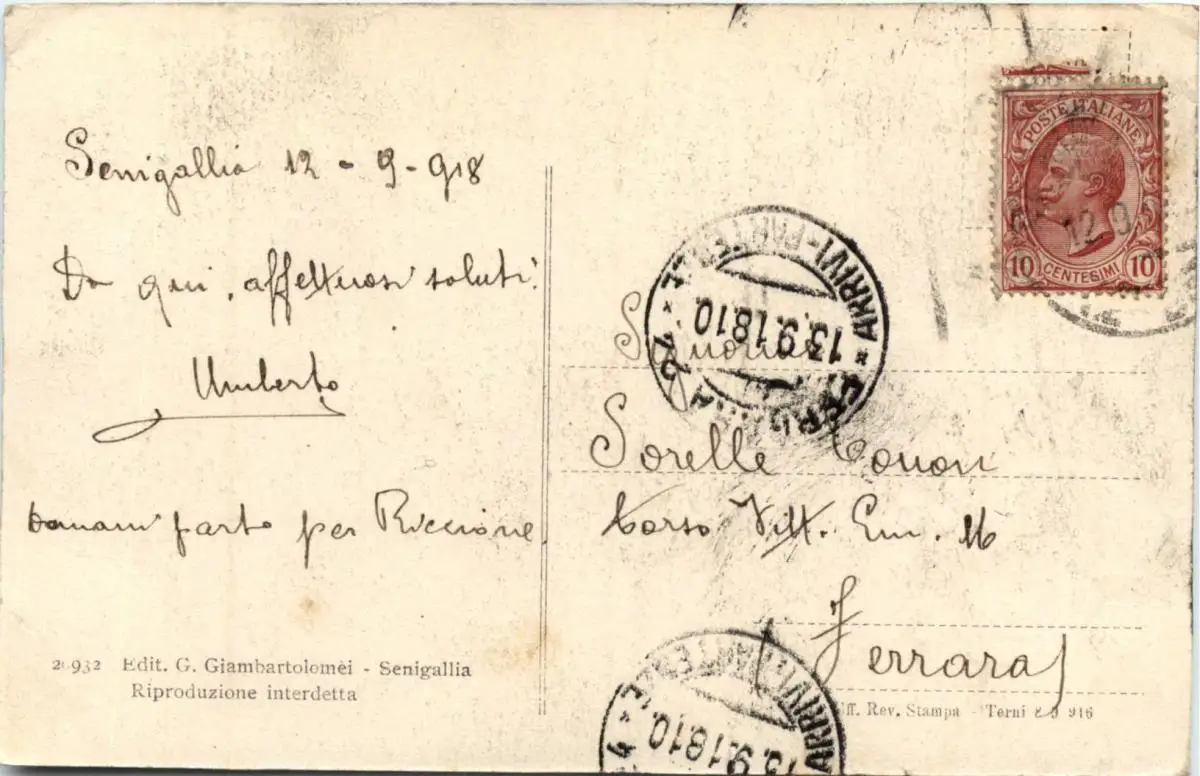 Senigallia 12 - 9 - 918
Da qui, affettuosi saluti!
Umberto
Domani parto per Riccione
Edit. G. Giambartolomei - Senigallia
Riproduzione interdetta
POSTE ITALIANE
12 9
10 CENTESIMI 10
ARRIVI-PARTENZE
13.9.18.10
FERRARA
Sorelle
Corso Vitt. Em. 16
Ferrara
ARRIVI-PARTENZE
13.9.18.10
Uff. Rev. Stampa - Terni 916